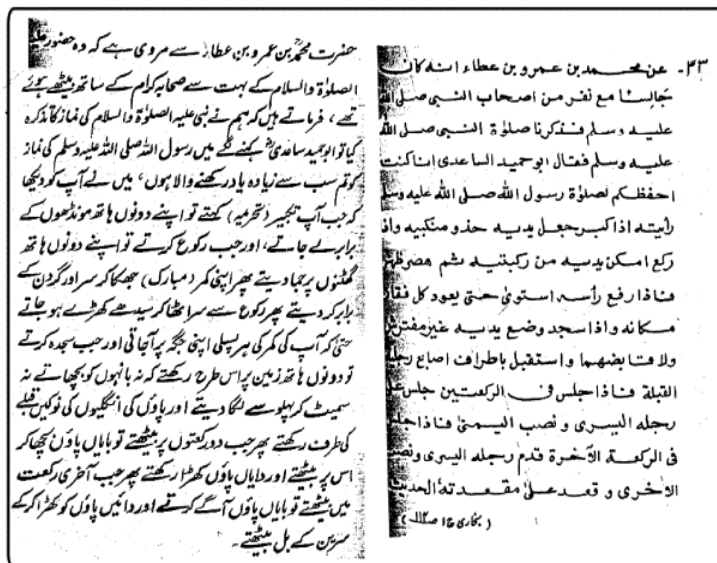 ۳۳- عن محمد بن عمرو بن عطاء انه كان
جَالسًا مع نفر من اصحاب النبی صلی الله
علیه وسلم فذكرنا صلوٰة النبی صلی الله
علیه وسلم فقال ابو حمید الساعدی انا كنت
احفظكم لصلوٰة رسول الله صلی الله علیه وسلم
رأیته اذا كبر جعل یدیه حذو منكبیه واذا
ركع امكن یدیه من ركبتیه ثم هصر ظهره
فاذا رفع رأسه استویٰ حتی یعود كل فقار
مكانه واذا سجد وضع یدیه غیر مفترش
ولا قابضهما واستقبل باطراف اصابع رجلیه
القبلة فاذا جلس فی الركعتین جلس علی
رجله الیسری و نصب الیمنیٰ فاذا جلس
فی الركعة الآخرة قدم رجله الیسری ونصب
الاخری و قعد علیٰ مقعدته الحدیث
(بخاری ج ۱ ص)
حضرت محمدؒ بن عمرو بن عطاء سے مروی ہے کہ وہ حضور علیہ
الصلوٰة والسلام کے بہت سے صحابہ کرام کے ساتھ بیٹھے ہوئے
تھے، فرماتے ہیں کہ ہم نے نبی علیہ الصلوٰة والسلام کی نماز کا تذکرہ
کیا تو ابو حمید ساعدیؓ کہنے لگے میں رسول اللہ صلی اللہ علیہ وسلم کی نماز
کو تم سب سے زیادہ یاد رکھنے والا ہوں، میں نے آپ کو دیکھا
کہ جب آپ تکبیر (تحریمہ) کہتے تو اپنے دونوں ہاتھ مونڈھوں کے
برابر لے جاتے، اور جب رکوع کرتے تو اپنے دونوں ہاتھ
گھٹنوں پر جما دیتے پھر اپنی کمر (مبارک) جھکا کر سر اور گردن کے
برابر کر دیتے پھر رکوع سے سر اٹھا کر سیدھے کھڑے ہو جاتے
حتیٰ کہ آپ کی کمر کی ہر پسلی اپنی جگہ پر آجاتی اور جب سجدہ کرتے
تو دونوں ہاتھ زمین پر اس طرح رکھتے کہ نہ بانہوں کو بچھاتے نہ
سمیٹ کر پہلو سے لگا دیتے اور پاؤں کی انگلیوں کی نوکیں قبلے
کی طرف رکھتے پھر جب دو رکعتوں پر بیٹھتے تو بایاں پاؤں بچھا کر
اس پر بیٹھتے اور دایاں پاؤں کھڑا رکھتے پھر جب آخری رکعت
میں بیٹھتے تو بایاں پاؤں آگے کرتے اور دائیں پاؤں کو کھڑا کر کے
سرین کے بل بیٹھتے۔